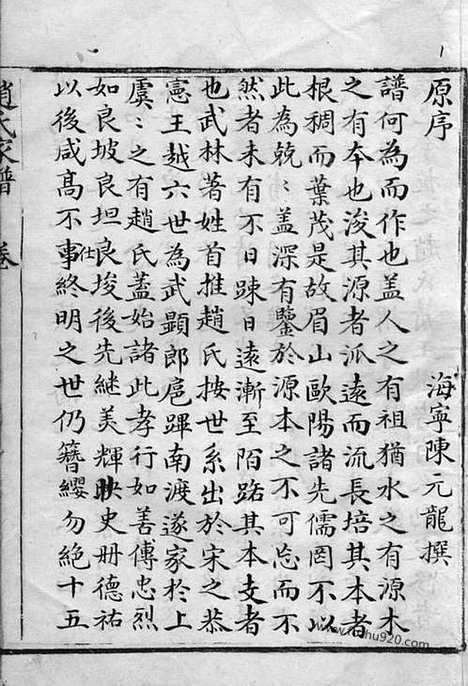 原序
海寧陳元龍撰
譜何為而作也蓋人之有祖猶水之有源木
之有夲也浚其源者派遠而流長培其本者
根稠而葉茂是故眉山歐陽諸先儒罔不以
此為兢〻蓋深有鑒於源本之不可忘而不
然者未有不日踈日遠漸至陌路其本支者
也武林著姓首推趙氏按世系出於宋之恭
憲王越六世為武顯郎扈蹕南渡遂家於上
虞〻之有趙氏蓋始諸此孝行如善傳忠烈
如良坡良坦良埈後先継美輝映史册德祐
仕
以後咸高不事終明之世仍簪纓勿絕十五
趙氏家譜 卷